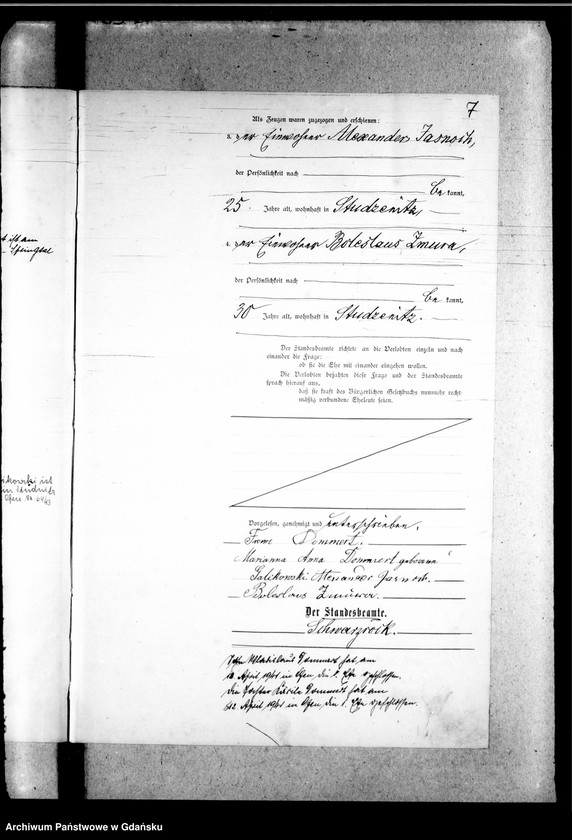 7
Als Zeugen waren zugezogen und erschienen:
3. der Einwohner Alexander Jasnoch,
der Persönlichkeit nach
be kannt,
25 Jahre alt, wohnhaft in Studzenitz,
4. der Einwohner Boleslaus Zmura,
der Persönlichkeit nach
be kannt,
30 Jahre alt, wohnhaft in Studzenitz.
Der Standesbeamte richtete an die Verlobten einzeln und nach
einander die Frage:
ob sie die Ehe mit einander eingehen wollen.
Die Verlobten bejahten diese Frage und der Standesbeamte
sprach hierauf aus,
daß sie kraft des Bürgerlichen Gesetzbuchs nunmehr recht-
mäßig verbundene Eheleute seien.
Vorgelesen, genehmigt und unterschrieben.
Franz Dommert.
Marianna Anna Dommert geborene
Salikowski Alexander Jasnoch.
Boleslaus Zmura.
Der Standesbeamte.
Wladislaus Dommert hat am
April 1941 in die Ehe geschlossen.
Die Tochter Dommert hat am
April 1941 in die 1. Ehe geschlossen.
ist am
ist
Archiwum Państwowe w Gdańsku